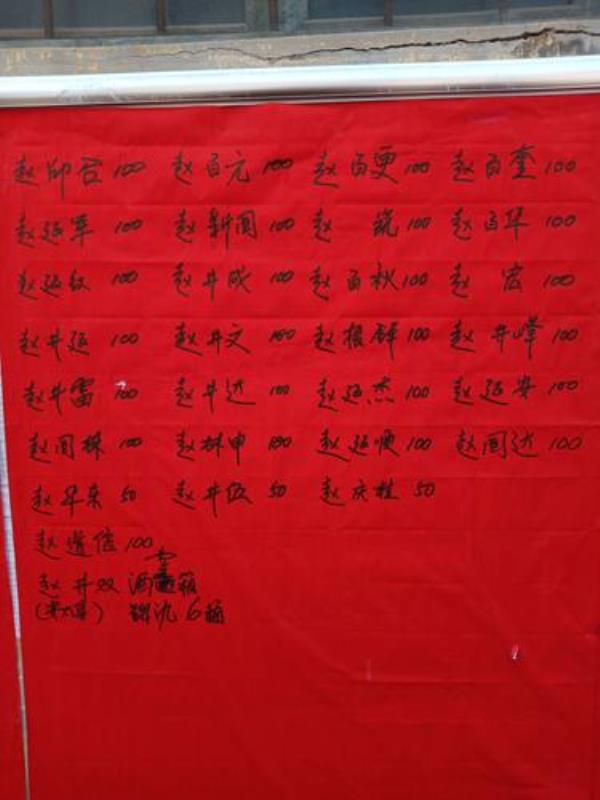 赵帅召 100 赵百元 100 赵百更 100 赵百奎 100
赵延军 100 赵新闻 100 赵 筑 100 赵百华 100
赵延红 100 赵井成 100 赵百秋 100 赵 宏 100
赵井延 100 赵井文 100 赵振锋 100 赵井峰 100
赵井雷 100 赵井达 100 赵延杰 100 赵延安 100
赵国栋 100 赵林申 100 赵延顺 100 赵国达 100
赵早东 50 赵井伍 50 赵庆柱 50
赵道信 100
赵井双 酒 箱
6桶